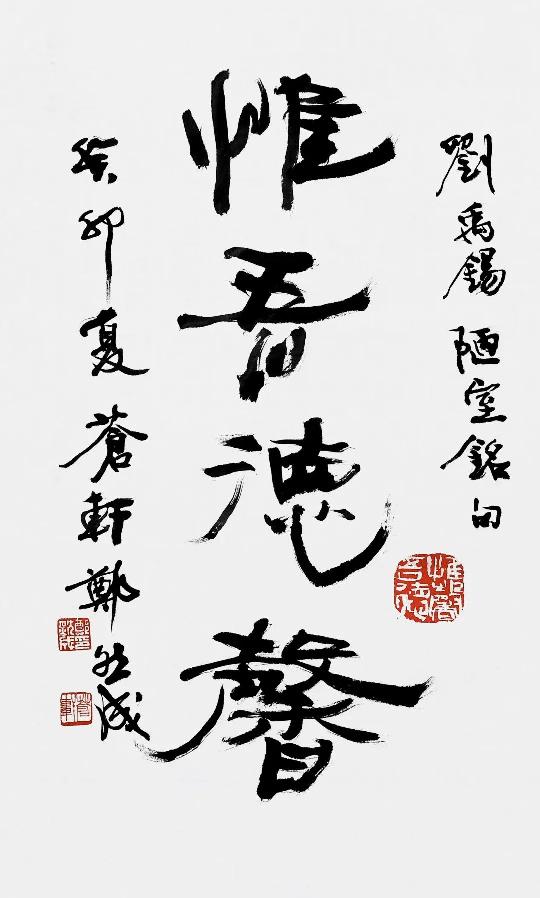 劉禹錫 陋室銘句
惟吾德馨
癸卯夏 蒼軒 鄭成
蒼軒